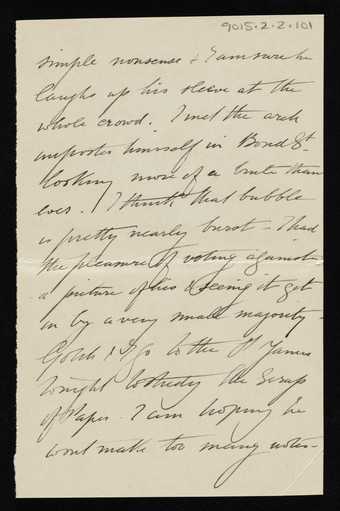 9015.2.2.101
simple nonsense & I am sure he
laughs up his sleeve at the
whole crowd. I met the arch
imposter himself in Bond St.
looking more of a brute than
ever. I think that bubble
is pretty nearly burst – I had
the pleasure of voting against
a picture of his & seeing it get
in by a very small majority –
& I go to the St James
tonight to study the Scrap
of Paper. I am hoping he
wont make too many notes –